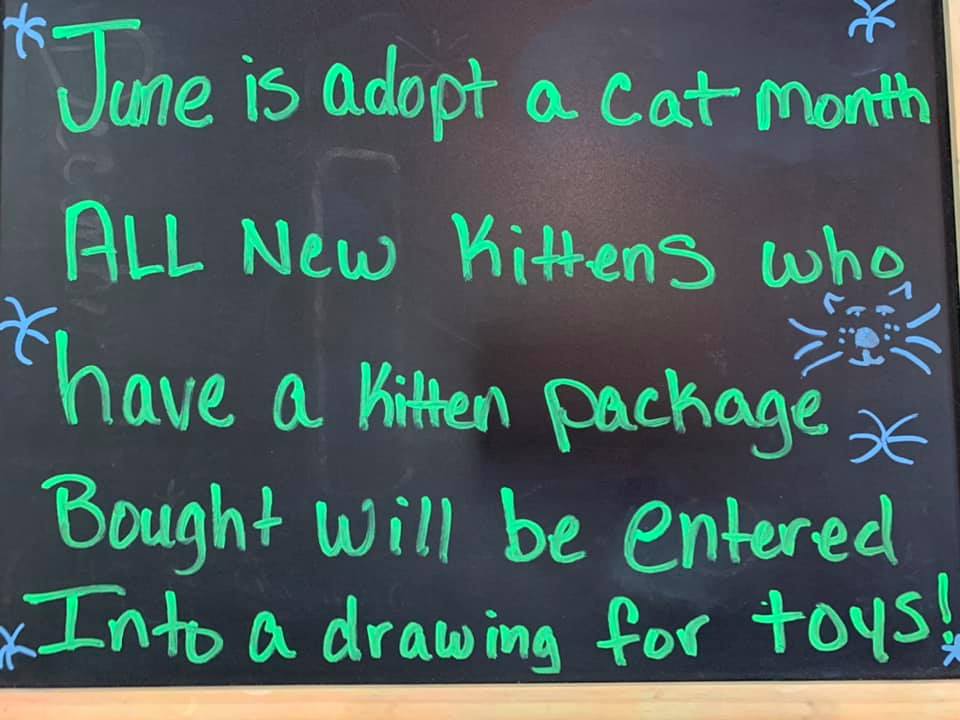 June is adopt a cat month
ALL New Kittens who
have a kitten package
Bought will be entered
Into a drawing for toys!